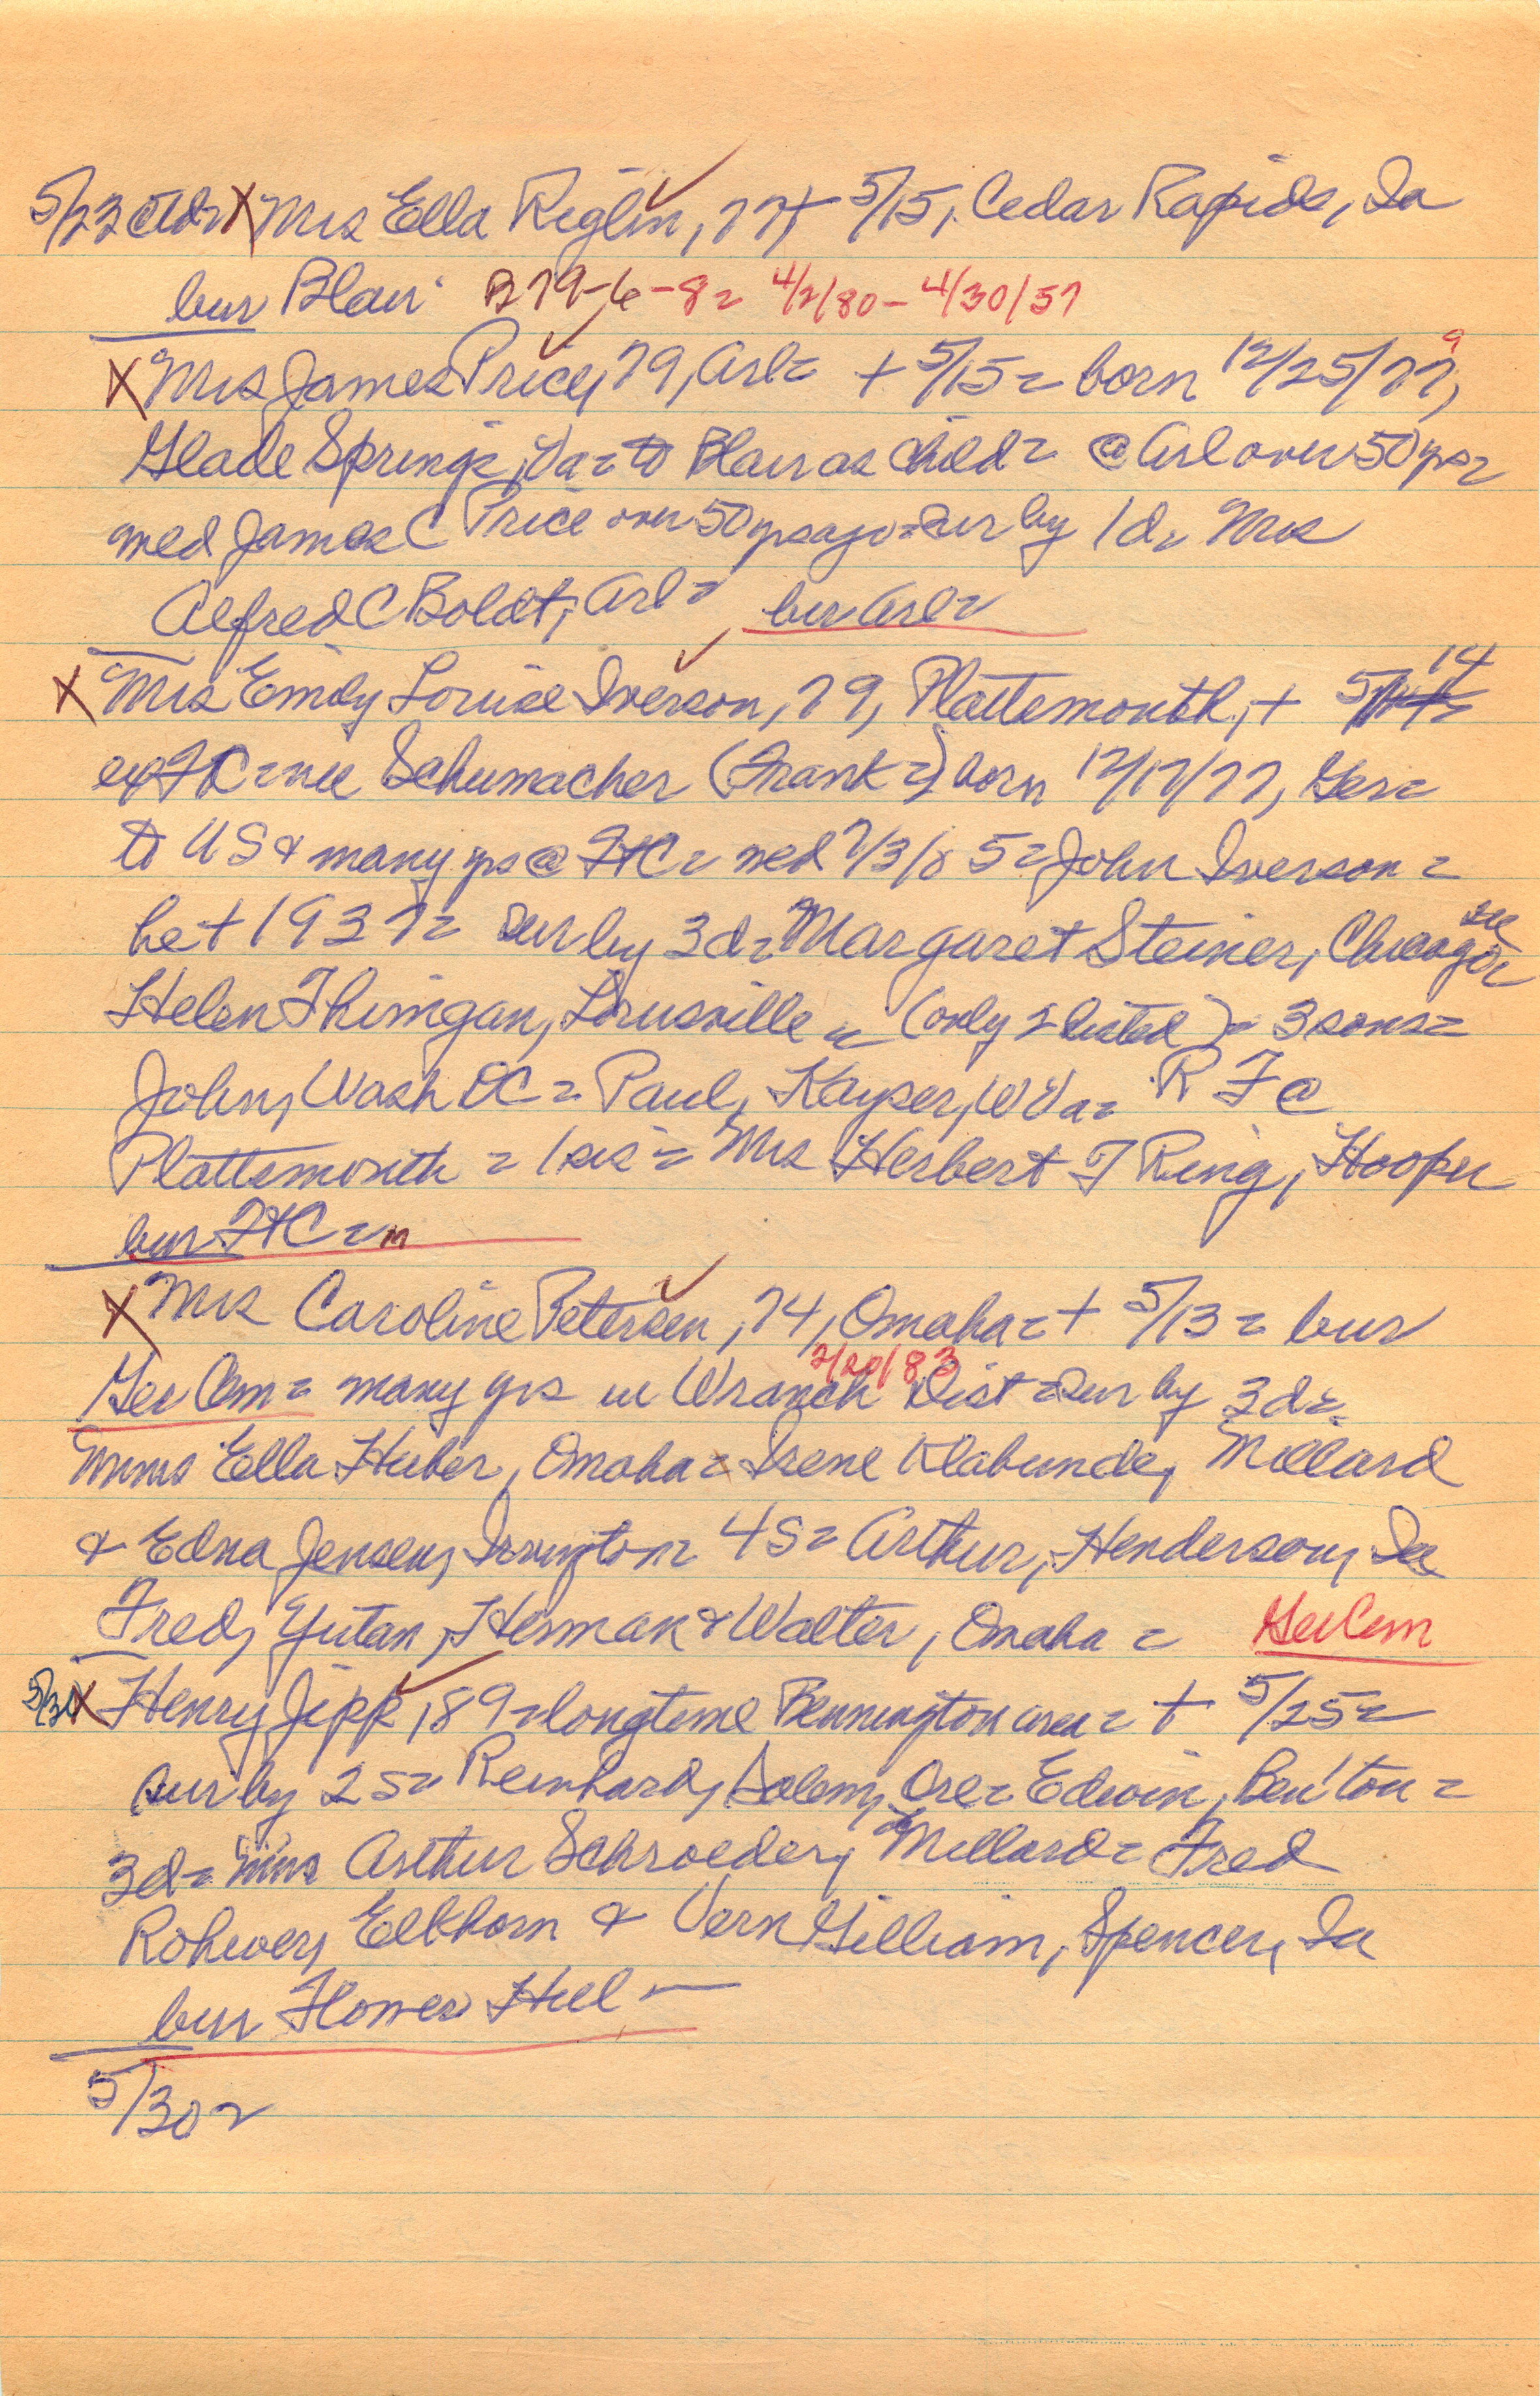 5/23 X Mrs Ella Reglin, 77, + 5/15, Cedar Rapids, Ia
bur Blair B79-6-8= 4/2/80-4/30/57
X Mrs James Price, 79, Arl= + 5/15= born 12/25/77, 9
Glade Springs, Va= to Blair as child= @ Arl over 50 yrs=
med James C Price over 50 yrs ago= sur by 1d= Mrs
Alfred C Boldt, Arl= bur Arl=
X Mrs Emily Louise Iverson, 79, Plattsmouth, + 5/14
ex FtC= nee Schumacher (Frank=) born 12/17/77, Ger=
to US & many yrs @ FtC= med 7/3/ 5= John Iverson=
he + 1937= sur by 3d= Margaret Steiner, Chicago= Ill
Helen Thimgan, Louisville = (only 2 listed)= 3 sons=
John, Wash DC= Paul, Kayser, W Va= R F @
Plattsmouth = 1 sis = Mrs Herbert F Ring, Hooper
bur FtC=
X Mrs Caroline Petersen, 74, Omaha= + 5/13= bur
2/20/83
Ger Cem= many yrs in Wranch Dist= sur by 3d=
Mmes Ella Huber, Omaha= Irene Klabunde, Millard
& Edna Jensen, Irvington= 4S= Arthur, Henderson, Ia
Fred, Yutan, Herman & Walter, Omaha = Ger Cem
5/30 X Henry Jipp, 89= longtime Bennington area= + 5/25=
sur by 2S= Reinhard, Salem, Ore= Edwin, Ben'ton=
3d= Mms Arthur Schroeder, Millard= Fred
Rohwer, Elkhorn & Vern Gilliam, Spencer, Ia
bur Flower Hill —
5/30=